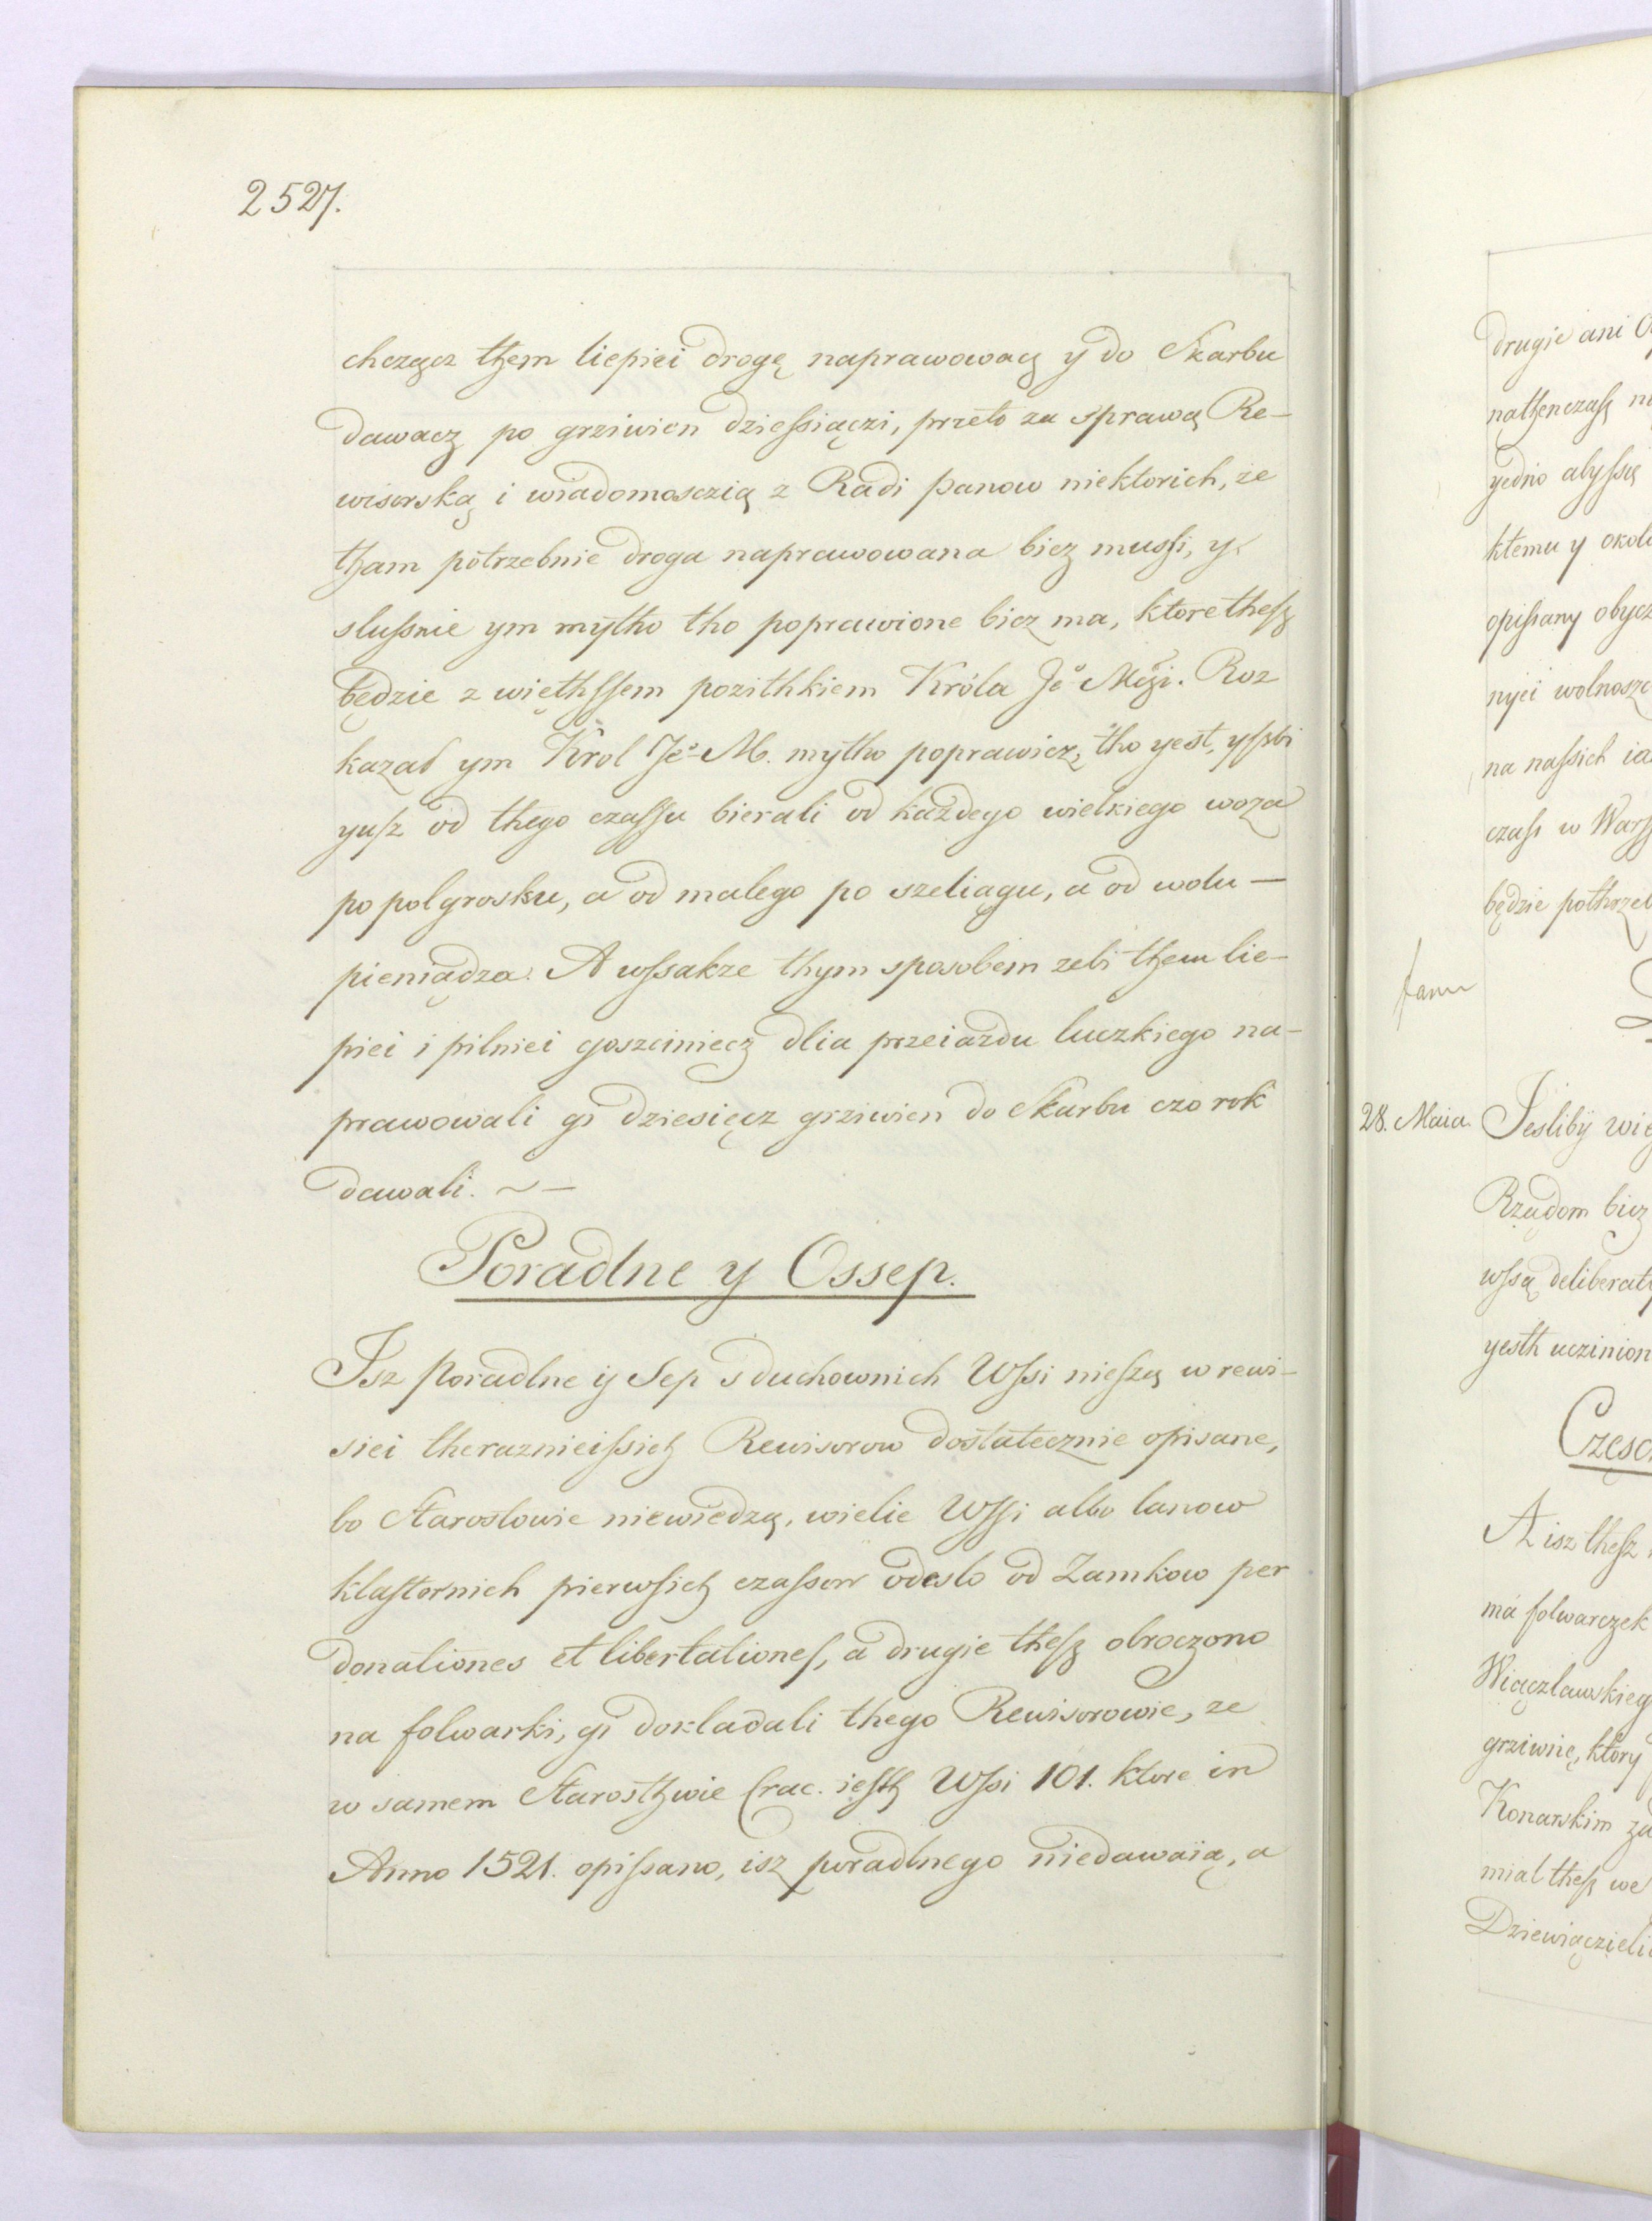 2527.
chcząncz them liepiei drogę naprawowacz y do Skarbu
dawacz po grziwien dziessiączi, przeto za sprawą Re-
wisorską i wiadomosczią z Radi panow niektorich, że
tham potrzebnie droga naprawowana bicz mussi, y
slusznie ym mytho tho poprawione bicz ma, ktore thesz
będzie z więthssem pozithkiem Króla Jeº Mczi. Roz
kazał ym Krol Jeº M. mytho poprawicz, tho yest, yszbi
yusz od thego czassu bierali od każdego wielkiego woza
po polgrosku, a od malego po szeliągu, a od wolu —
pieniądza. A wssakze thym sposobem zebi them lie-
piei i pilniei goszciniecz dlia przeiazdu luczkiego na-
prawowali gi dziesięcz grziwien do Skarbu czo rok
dawali. ~ —
Poradlne y Ossep.
Isz Poradlne ÿ Sep s duchownich Wssi nieszą w rewi-
siei theraznieissich Rewisorow dostatecznie opisane,
bo Starostowie niewiedzą, wielie Wssi albo lanow
klastornich pierwsich czassow odeslo od Zamkow per
donationes et libertationes, a drugie thesz obroczono
na folwarki, gi dokladali thego Rewisorowie, ze
w samem Starosthwie Crac. iesth Wssi 101. ktore in
Anno 1521. opissano, isz poradlnego niedawaią, a
drugie ani
nathenczass
yedno abyssię
ktemu y
opissany
nyei
na nassich
czass w
będzie
28. Maia. Jesliby
Rządom bicz
wssą
yesth
A isz thesz
ma folwarczek
grziwnie, ktory
Konarskim
mial thesz we